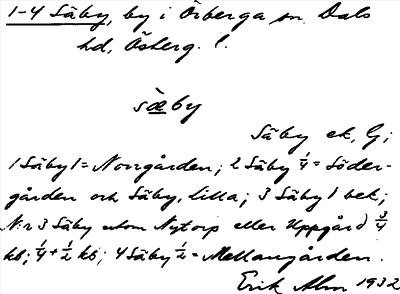 1-4 Säby, by i Örberga sn. Dals
hd, Österg. l.
sæby
Säby ek, G;
1 Säby 1 = Norrgården; 2 Säby 1/4 = Söder-
gården och Säby, lilla; 3 Säby 1 bek;
N:r 3 Säby utom Nytorp eller Uppgård 3/4
kb; 1/4 + 1/2 kb; 4 Säby 1/2 = Mellangården.
Erik Alm 1932